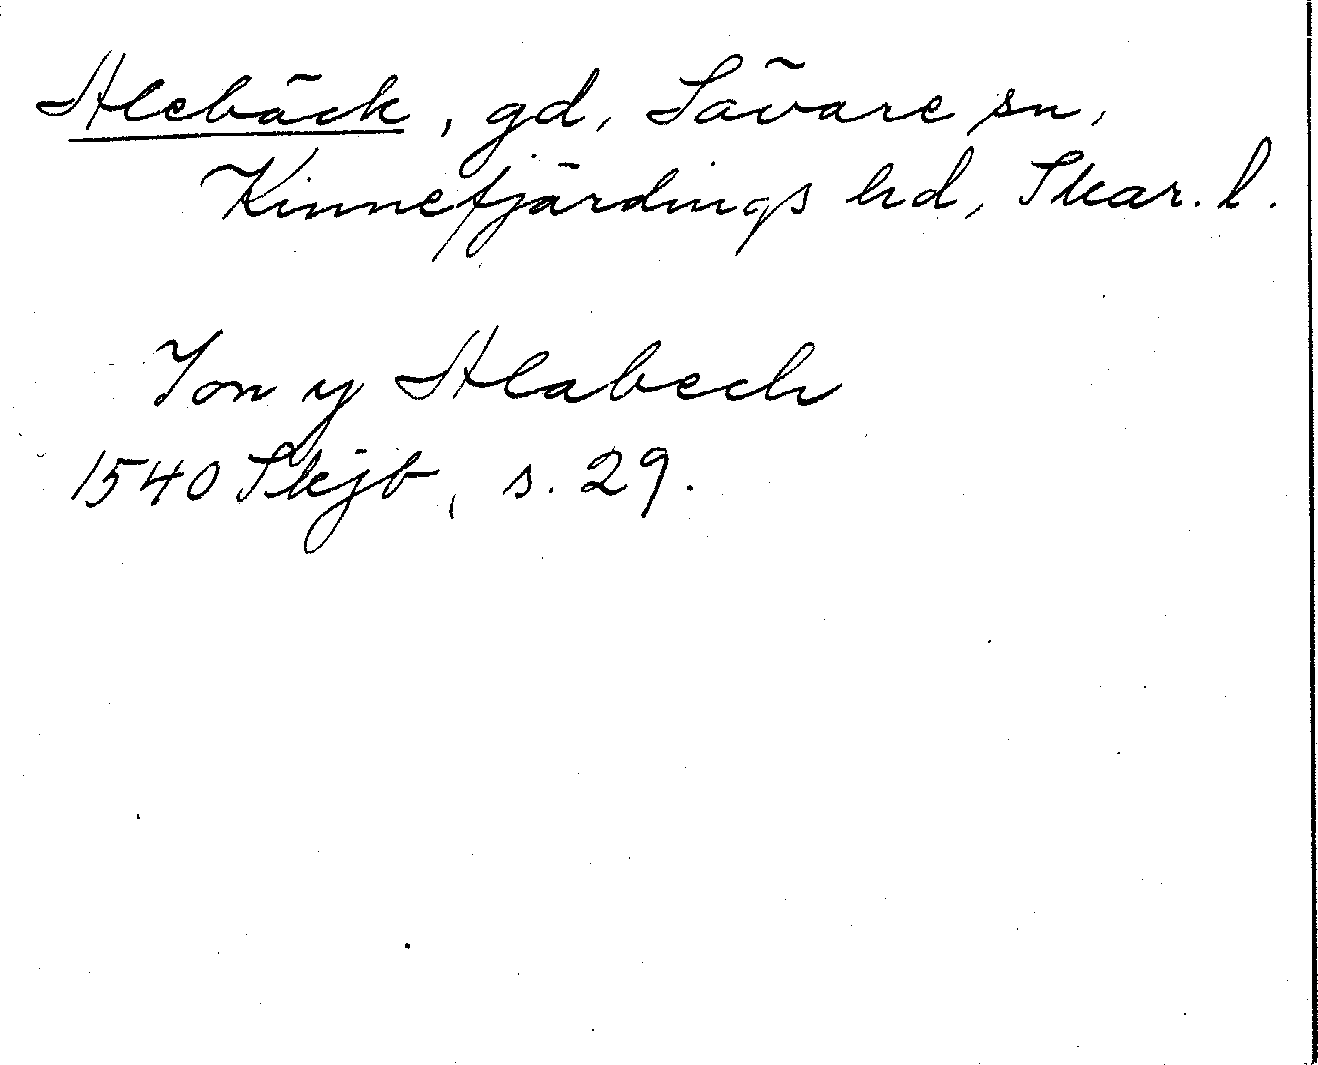 Alebäck, gd, Sävare sn,
Kinnefjärdings hd, Skar. l.
Jon y Alabech
1540 Skjb, s. 29.